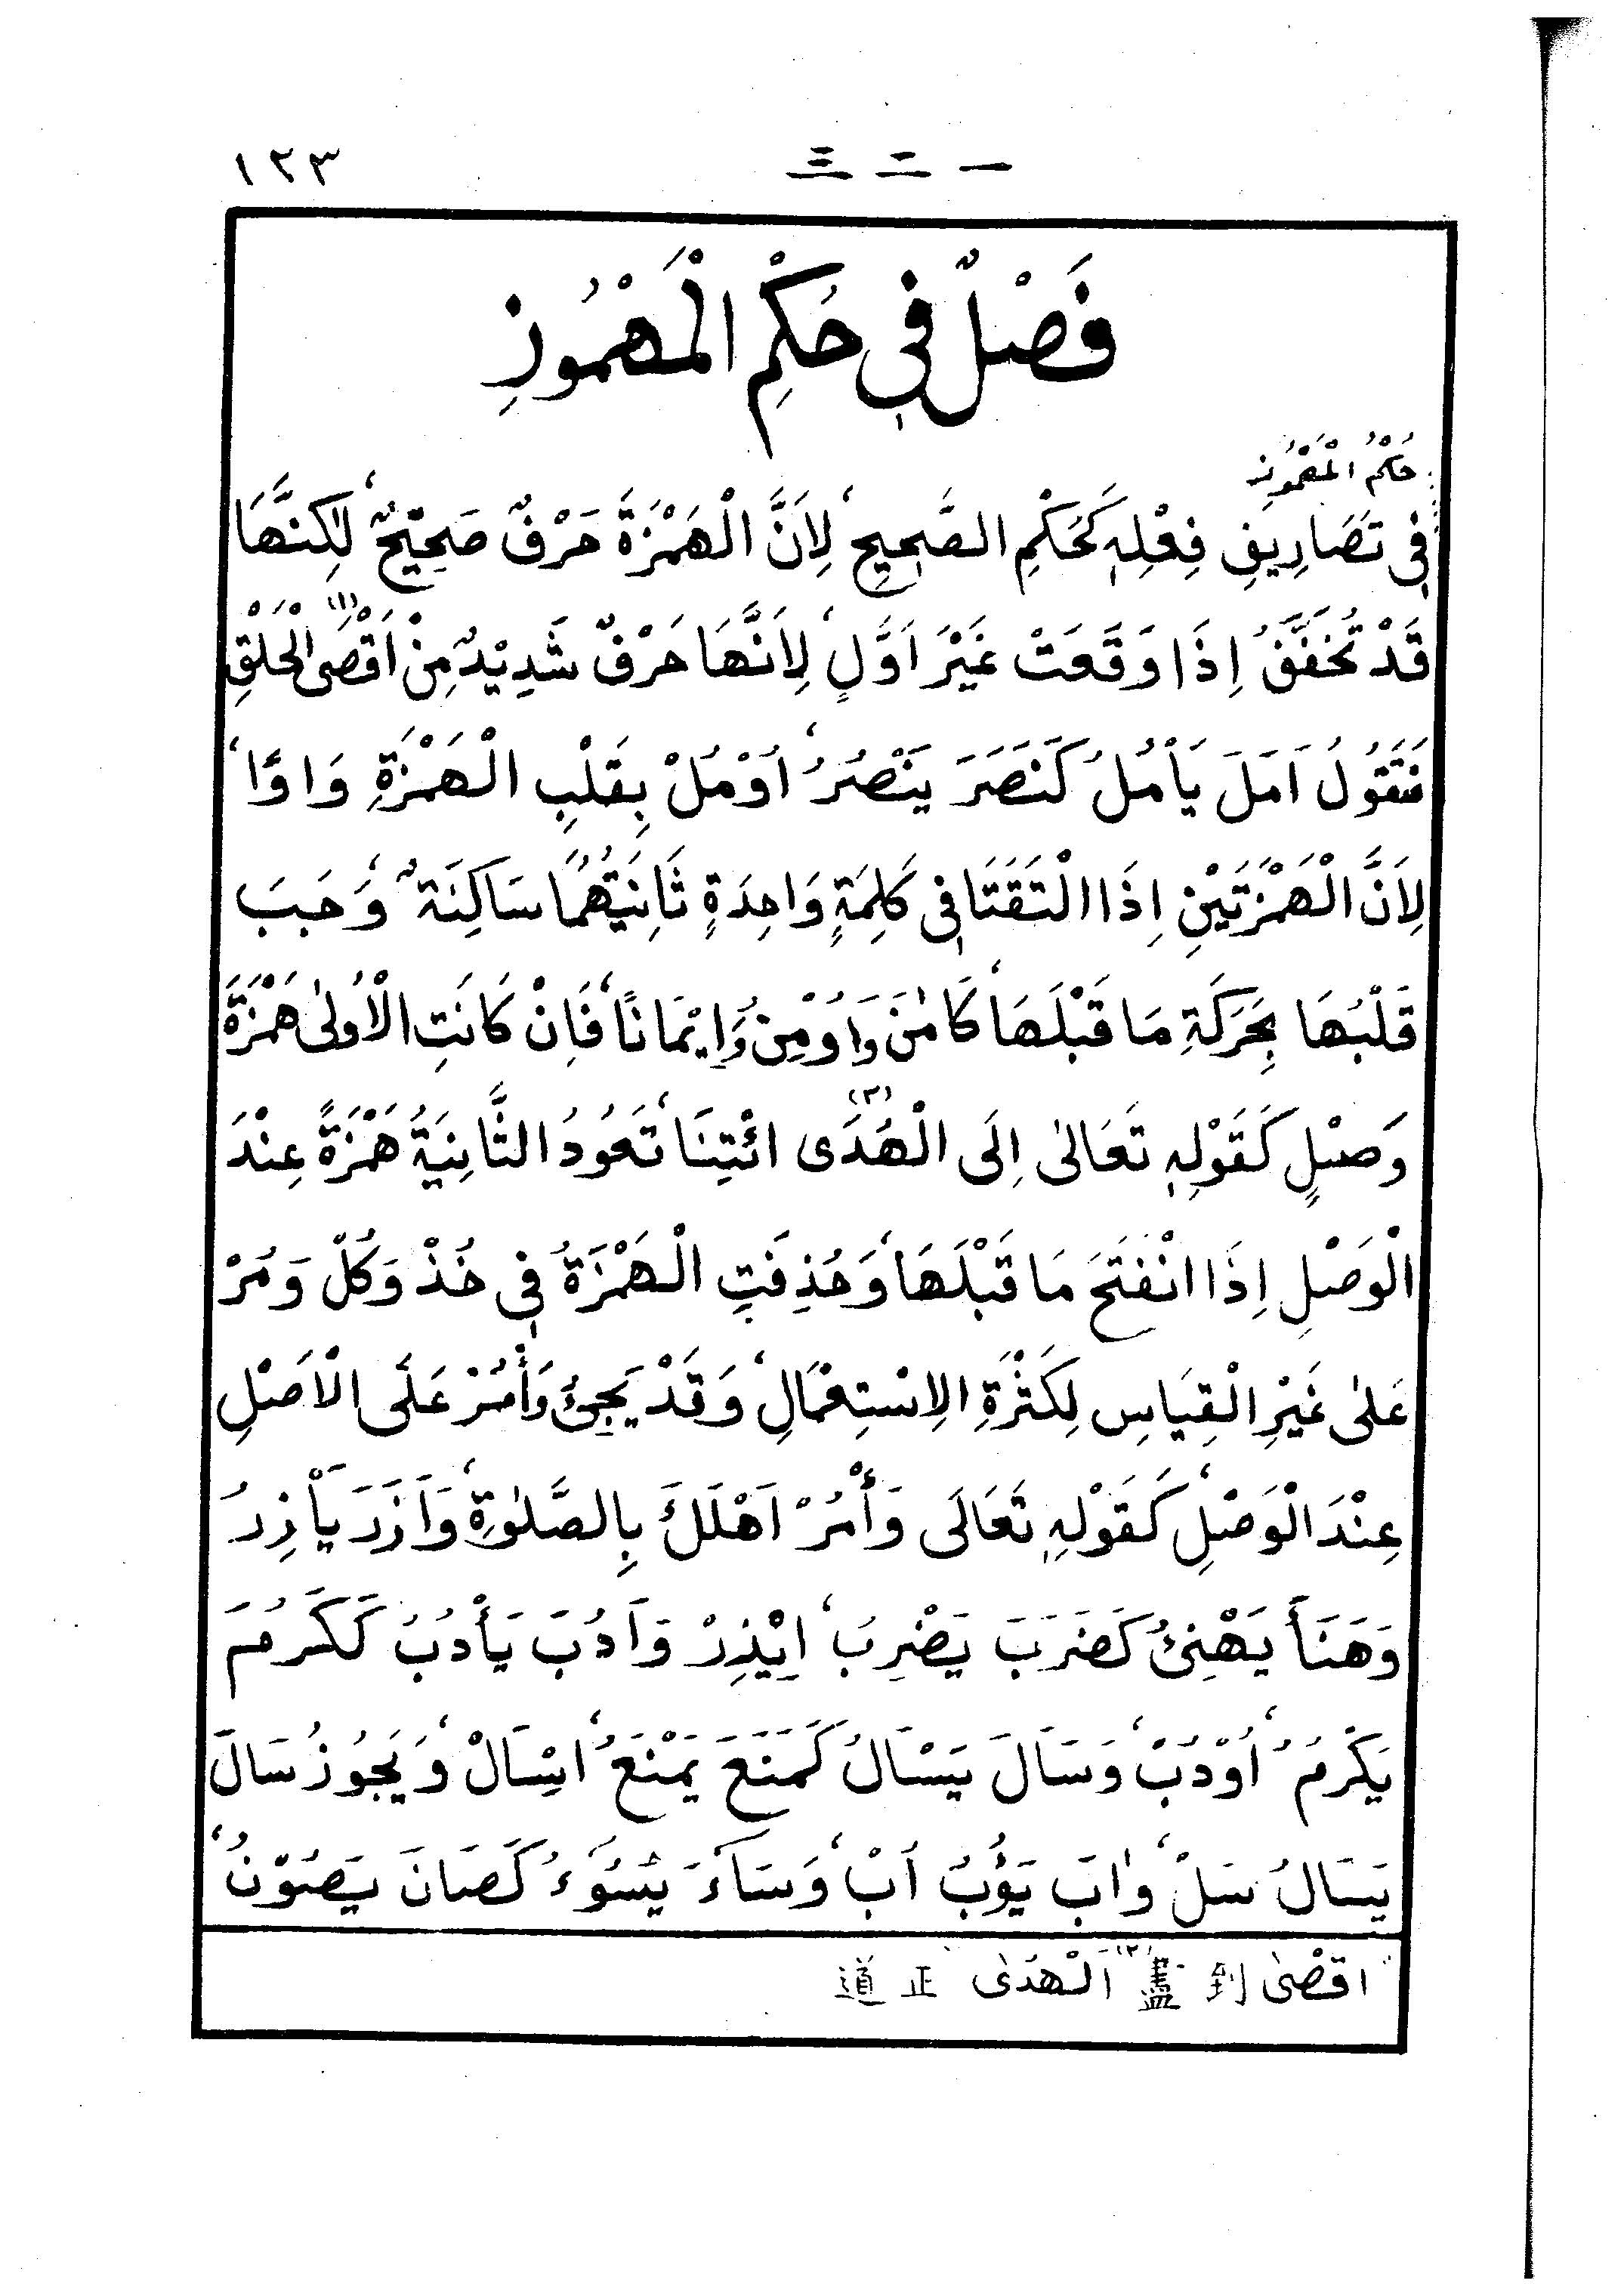 一二三 ١٢٣
فَصْلٌ فِي حُكْمِ الْمَهْمُوزِ
حُكْمُ الْمَهْمُوزِ
فِي تَصَارِيفِ فِعْلِهٖ كَحُكْمِ الصَّحِيحِ، لِاَنَّ الْهَمْزَةَ حَرْفٌ صَحِيْحٌ، لٰكِنَّهَا
قَدْ تُخَفَّفُ اِذَا وَقَعَتْ غَيْرَ اَوَّلٍ، لِاَنَّهَا حَرْفٌ شَدِيْدٌ مِنْ اَقْصَى(١) الْحَلْقِ
فَتَقُولُ اَمَلَ يَاْمُلُ كَنَصَرَ يَنْصُرُ، اُوْمُلْ بِقَلْبِ الْهَمْزَةِ وَاوًا،
لِاَنَّ الْهَمْزَتَيْنِ اِذَا الْتَقَتَا فِي كَلِمَةٍ وَاحِدَةٍ ثَانِيَتُهُمَا سَاكِنَةٌ، وَجَبَ
قَلْبُهَا بِحَرَكَةِ مَا قَبْلَهَا، كَاٰمَنَ وَاُوْمِنُ وَاِيْمَانًا، فَاِنْ كَانَتِ الْاُولٰى هَمْزَةَ
وَصْلٍ كَقَوْلِهٖ تَعَالٰى اِلَى الْهُدَى(٢) ائْتِنَا، تَعُودُ الثَّانِيَةُ هَمْزَةً عِنْدَ
الْوَصْلِ اِذَا انْفَتَحَ مَا قَبْلَهَا، وَحُذِفَتِ الْهَمْزَةُ فِي خُذْ وَكُلْ وَمُرْ
عَلٰى غَيْرِ الْقِيَاسِ لِكَثْرَةِ الِاسْتِعْمَالِ، وَقَدْ يَجِيْئُ وَأْمُرْ عَلَى الْاَصْلِ
عِنْدَ الْوَصْلِ، كَقَوْلِهٖ تَعَالَى وَأْمُرْ اَهْلَكَ بِالصَّلٰوةِ، وَاَزَرَ يَاْزِرُ
وَهَنَأَ يَهْنِئُ كَضَرَبَ يَضْرِبُ، اِيْذِرْ وَاَدُبَ يَأْدُبُ كَكَرُمَ
يَكْرُمُ، اُوْدُبْ، وَسَاَلَ يَسْاَلُ كَمَنَعَ يَمْنَعُ، اِسْاَلْ، وَيَجُوزُ سَالَ
يَسَالُ سَلْ، وَاٰبَ يَؤُبُ اُبْ، وَسَاۤءَ يَسُوۤءُ كَصَانَ يَصُوْنُ،
اَقْصٰى 到盡 (٢) اَلْهُدٰى 正道